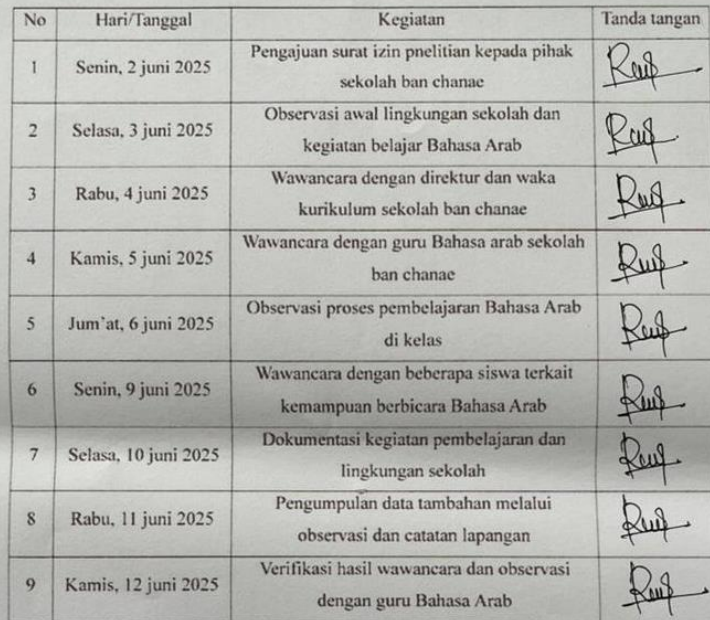 No Hari/Tanggal Kegiatan Tanda tangan
1 Senin, 2 juni 2025 Pengajuan surat izin pnelitian kepada pihak
sekolah ban chanae
2 Selasa, 3 juni 2025 Observasi awal lingkungan sekolah dan
kegiatan belajar Bahasa Arab
3 Rabu, 4 juni 2025 Wawancara dengan direktur dan waka
kurikulum sekolah ban chanae
4 Kamis, 5 juni 2025 Wawancara dengan guru Bahasa arab sekolah
ban chanae
5 Jum'at, 6 juni 2025 Observasi proses pembelajaran Bahasa Arab
di kelas
6 Senin, 9 juni 2025 Wawancara dengan beberapa siswa terkait
kemampuan berbicara Bahasa Arab
7 Selasa, 10 juni 2025 Dokumentasi kegiatan pembelajaran dan
lingkungan sekolah
8 Rabu, 11 juni 2025 Pengumpulan data tambahan melalui
observasi dan catatan lapangan
9 Kamis, 12 juni 2025 Verifikasi hasil wawancara dan observasi
dengan guru Bahasa Arab